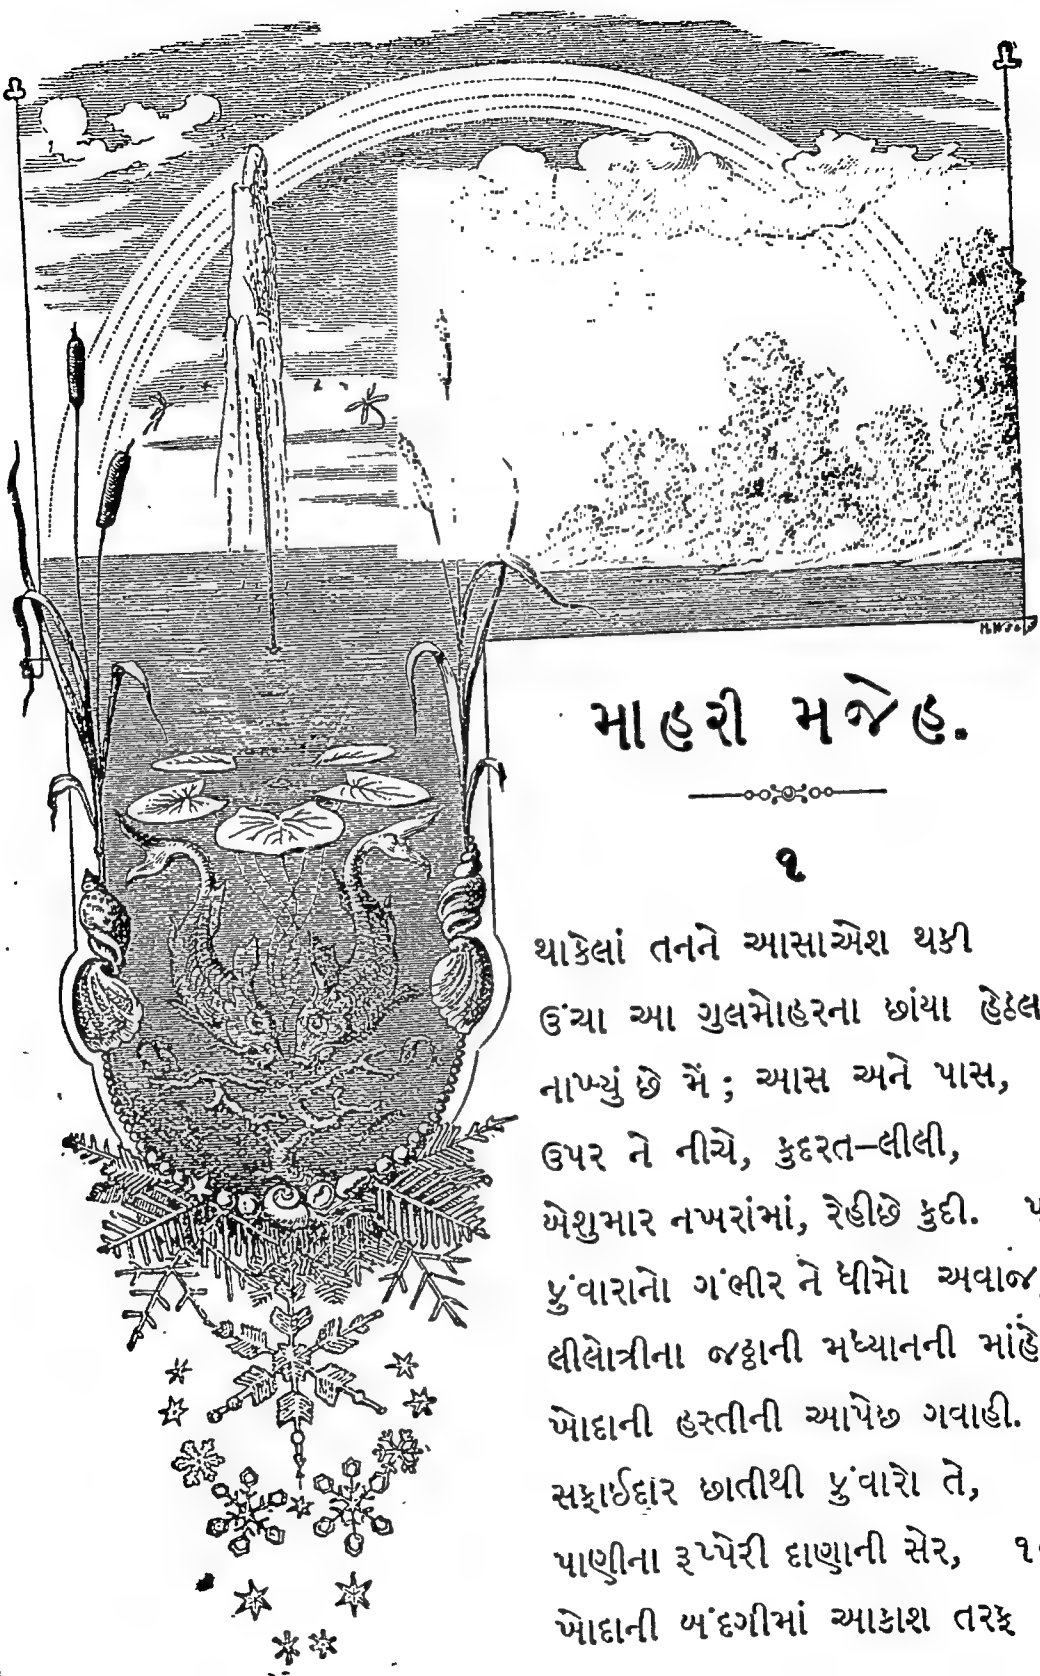 માહરી મજેહ.
૧
થાકેલાં તનને આસાએશ થકી
ઉંચા આ ગુલમોહરના છાંયા હેઠલ
નાખ્યું છે મેં; આસ અને પાસ,
ઉપર ને નીચે, કુદરત–લીલી,
બેશુમાર નખરાંમાં, રેહીછે કુદી.
ફુંવારાનો ગંભીર ને ધીમો અવાજ,
લીલોત્રીના જઠ્ઠાની મધ્યાનની માંહે
ખોદાની હસ્તીની આપેછ ગવાહી.
સફાઈદાર છાતીથી ફુંવારો તે,
પાણીના રૂપ્પેરી દાણાની સેર,
ખોદાની બંદગીમાં આકાશ તરફ